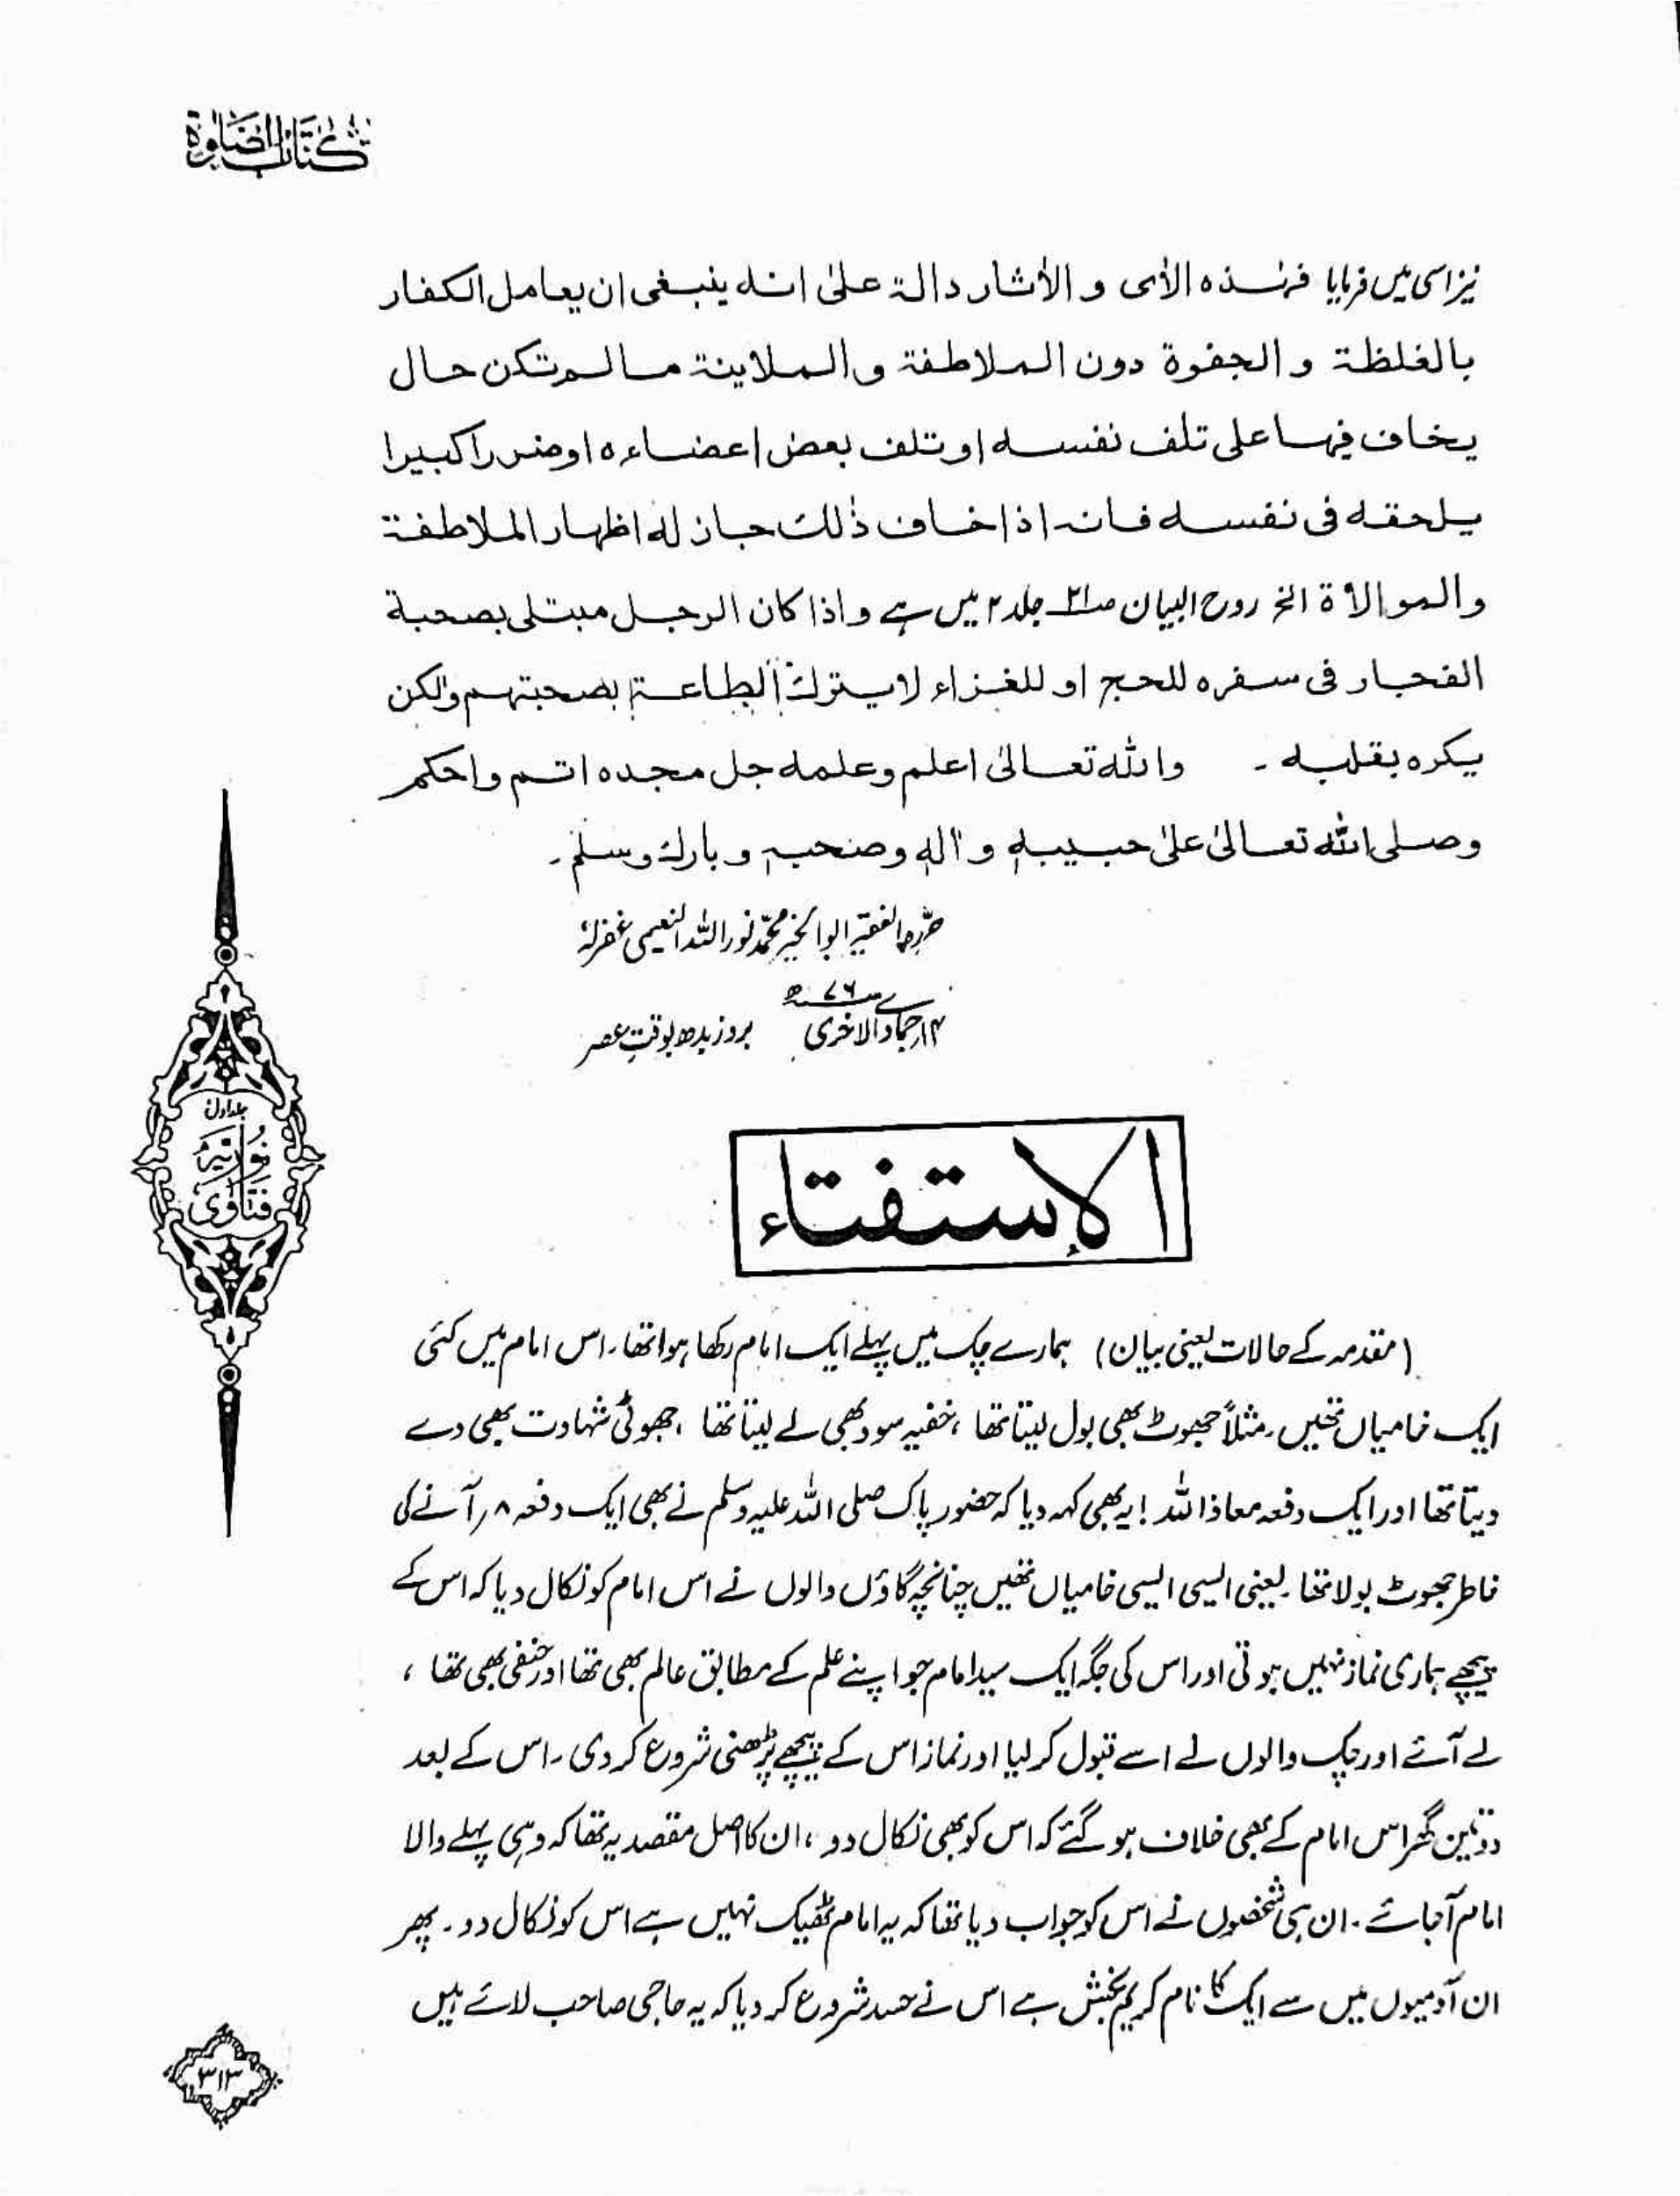 كتاب الصلوة
نیز اسی میں فرمایا فهٰذه الاٰى و الاٰثار دالة علىٰ انه ينبغى ان يعامل الكفار
بالغلظة و الجفوة دون الملاطفة و الملاينة مالم تكن حال
يخاف فيها على تلف نفسه او تلف بعض اعضاءه او ضررا كبيرا
يلحقه فى نفسه فانه اذا خاف ذٰلك جاز له اظهار الملاطفة
والموالاة الخ روح البیان جلد ۲ میں ہے و اذا كان الرجل مبتلى بصحبة
الفجار فى سفره للحج او للغزاء لا يترك الطاعة بصحبتهم ولكن
يكره بقلبه ۔ والله تعالىٰ اعلم وعلمه جل مجده اتم واحكم
وصلى الله تعالىٰ علىٰ حبيبه و اٰله وصحبه و بارك وسلم ۔
حررہ الفقیر ابوالخیر محمد نور اللہ النعیمی غفرلہٗ
۱۴ جمادی الاخریٰ ۷۶ھ بروز بدھ بوقتِ عصر
جلد اول
فتاویٰ نوریہ
الاستفتاء
(مقدمہ کے حالات یعنی بیان) ہمارے چک میں پہلے ایک امام رکھا ہوا تھا۔ اس امام میں کئی
ایک خامیاں تھیں۔ مثلاً جھوٹ بھی بول لیتا تھا، خفیہ سود بھی لے لیتا تھا، جھوٹی شہادت بھی دے
دیتا تھا اور ایک دفعہ معاذ اللہ! یہ بھی کہہ دیا کہ حضور پاک صلی اللہ علیہ وسلم نے بھی ایک دفعہ ۸؍ آنے کی
خاطر جھوٹ بولا تھا۔ یعنی ایسی ایسی خامیاں تھیں چنانچہ گاؤں والوں نے اس امام کو نکال دیا کہ اس کے
پیچھے ہماری نماز نہیں ہوتی اور اس کی جگہ ایک سید امام جو اپنے علم کے مطابق عالم بھی تھا اور حنفی بھی تھا،
لے آئے اور چک والوں لے اسے قبول کر لیا اور نماز اس کے پیچھے پڑھنی شروع کر دی۔ اس کے بعد
دو تین گھر اس امام کے بھی خلاف ہو گئے کہ اس کو بھی نکال دو، ان کا اصل مقصد یہ تھا کہ وہی پہلے والا
امام آجائے۔ ان ہی شخصوں نے اس کو جواب دیا تھا کہ یہ امام ٹھیک نہیں ہے اس کو نکال دو۔ پھر
ان آدمیوں میں سے ایک کا نام کریم بخش ہے اس نے حسد شروع کر دیا کہ یہ حاجی صاحب لائے ہیں
۳۱۳